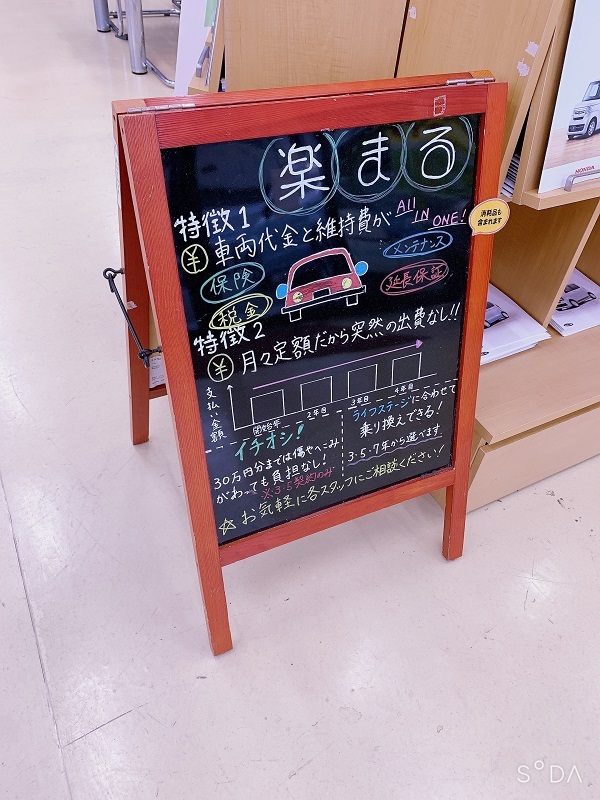 楽まる
特徴1
¥ 車両代金と維持費が All IN ONE!
消耗品も
含まれます
保険
メンテナンス
税金
延長保証
特徴2
¥ 月々定額だから突然の出費なし!!
支払い金額
開始年 2年目 3年目 4年目
イチオシ!
30万円分までは傷やへこみ
があっても負担なし!
※3・5契約のみ
ライフステージに合わせて
乗り換えできる!
3・5・7年から選べます
☆お気軽に各スタッフにご相談ください!
HONDA
SODA